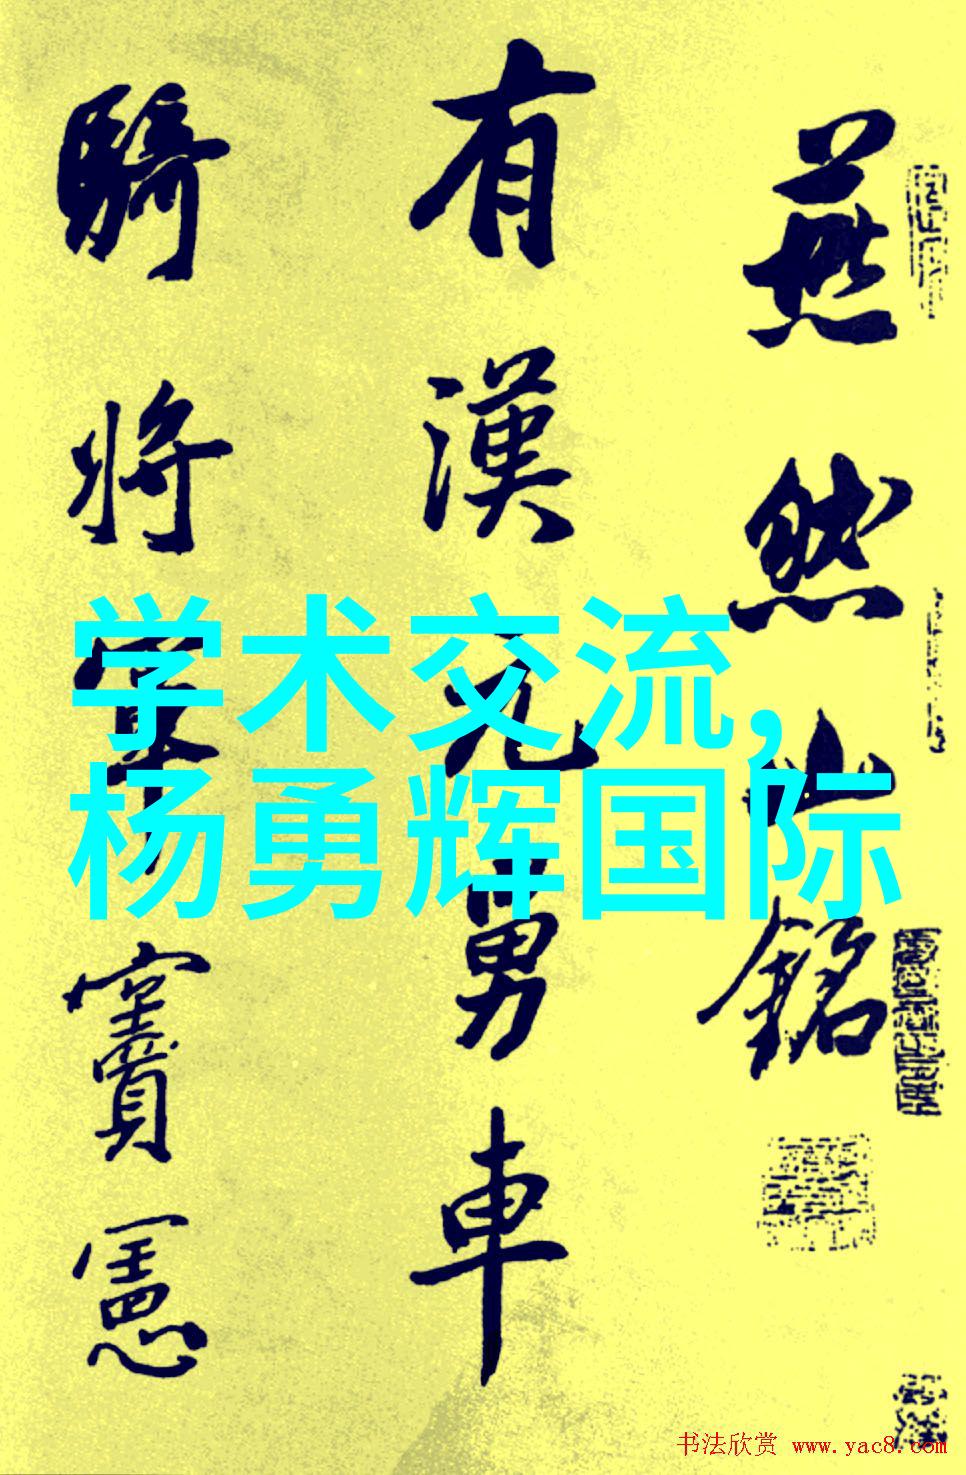 燕然山銘
有漢元舅車
騎將軍竇憲
学术交流，
杨勇辉国际
书法欣赏 www.yac8.com